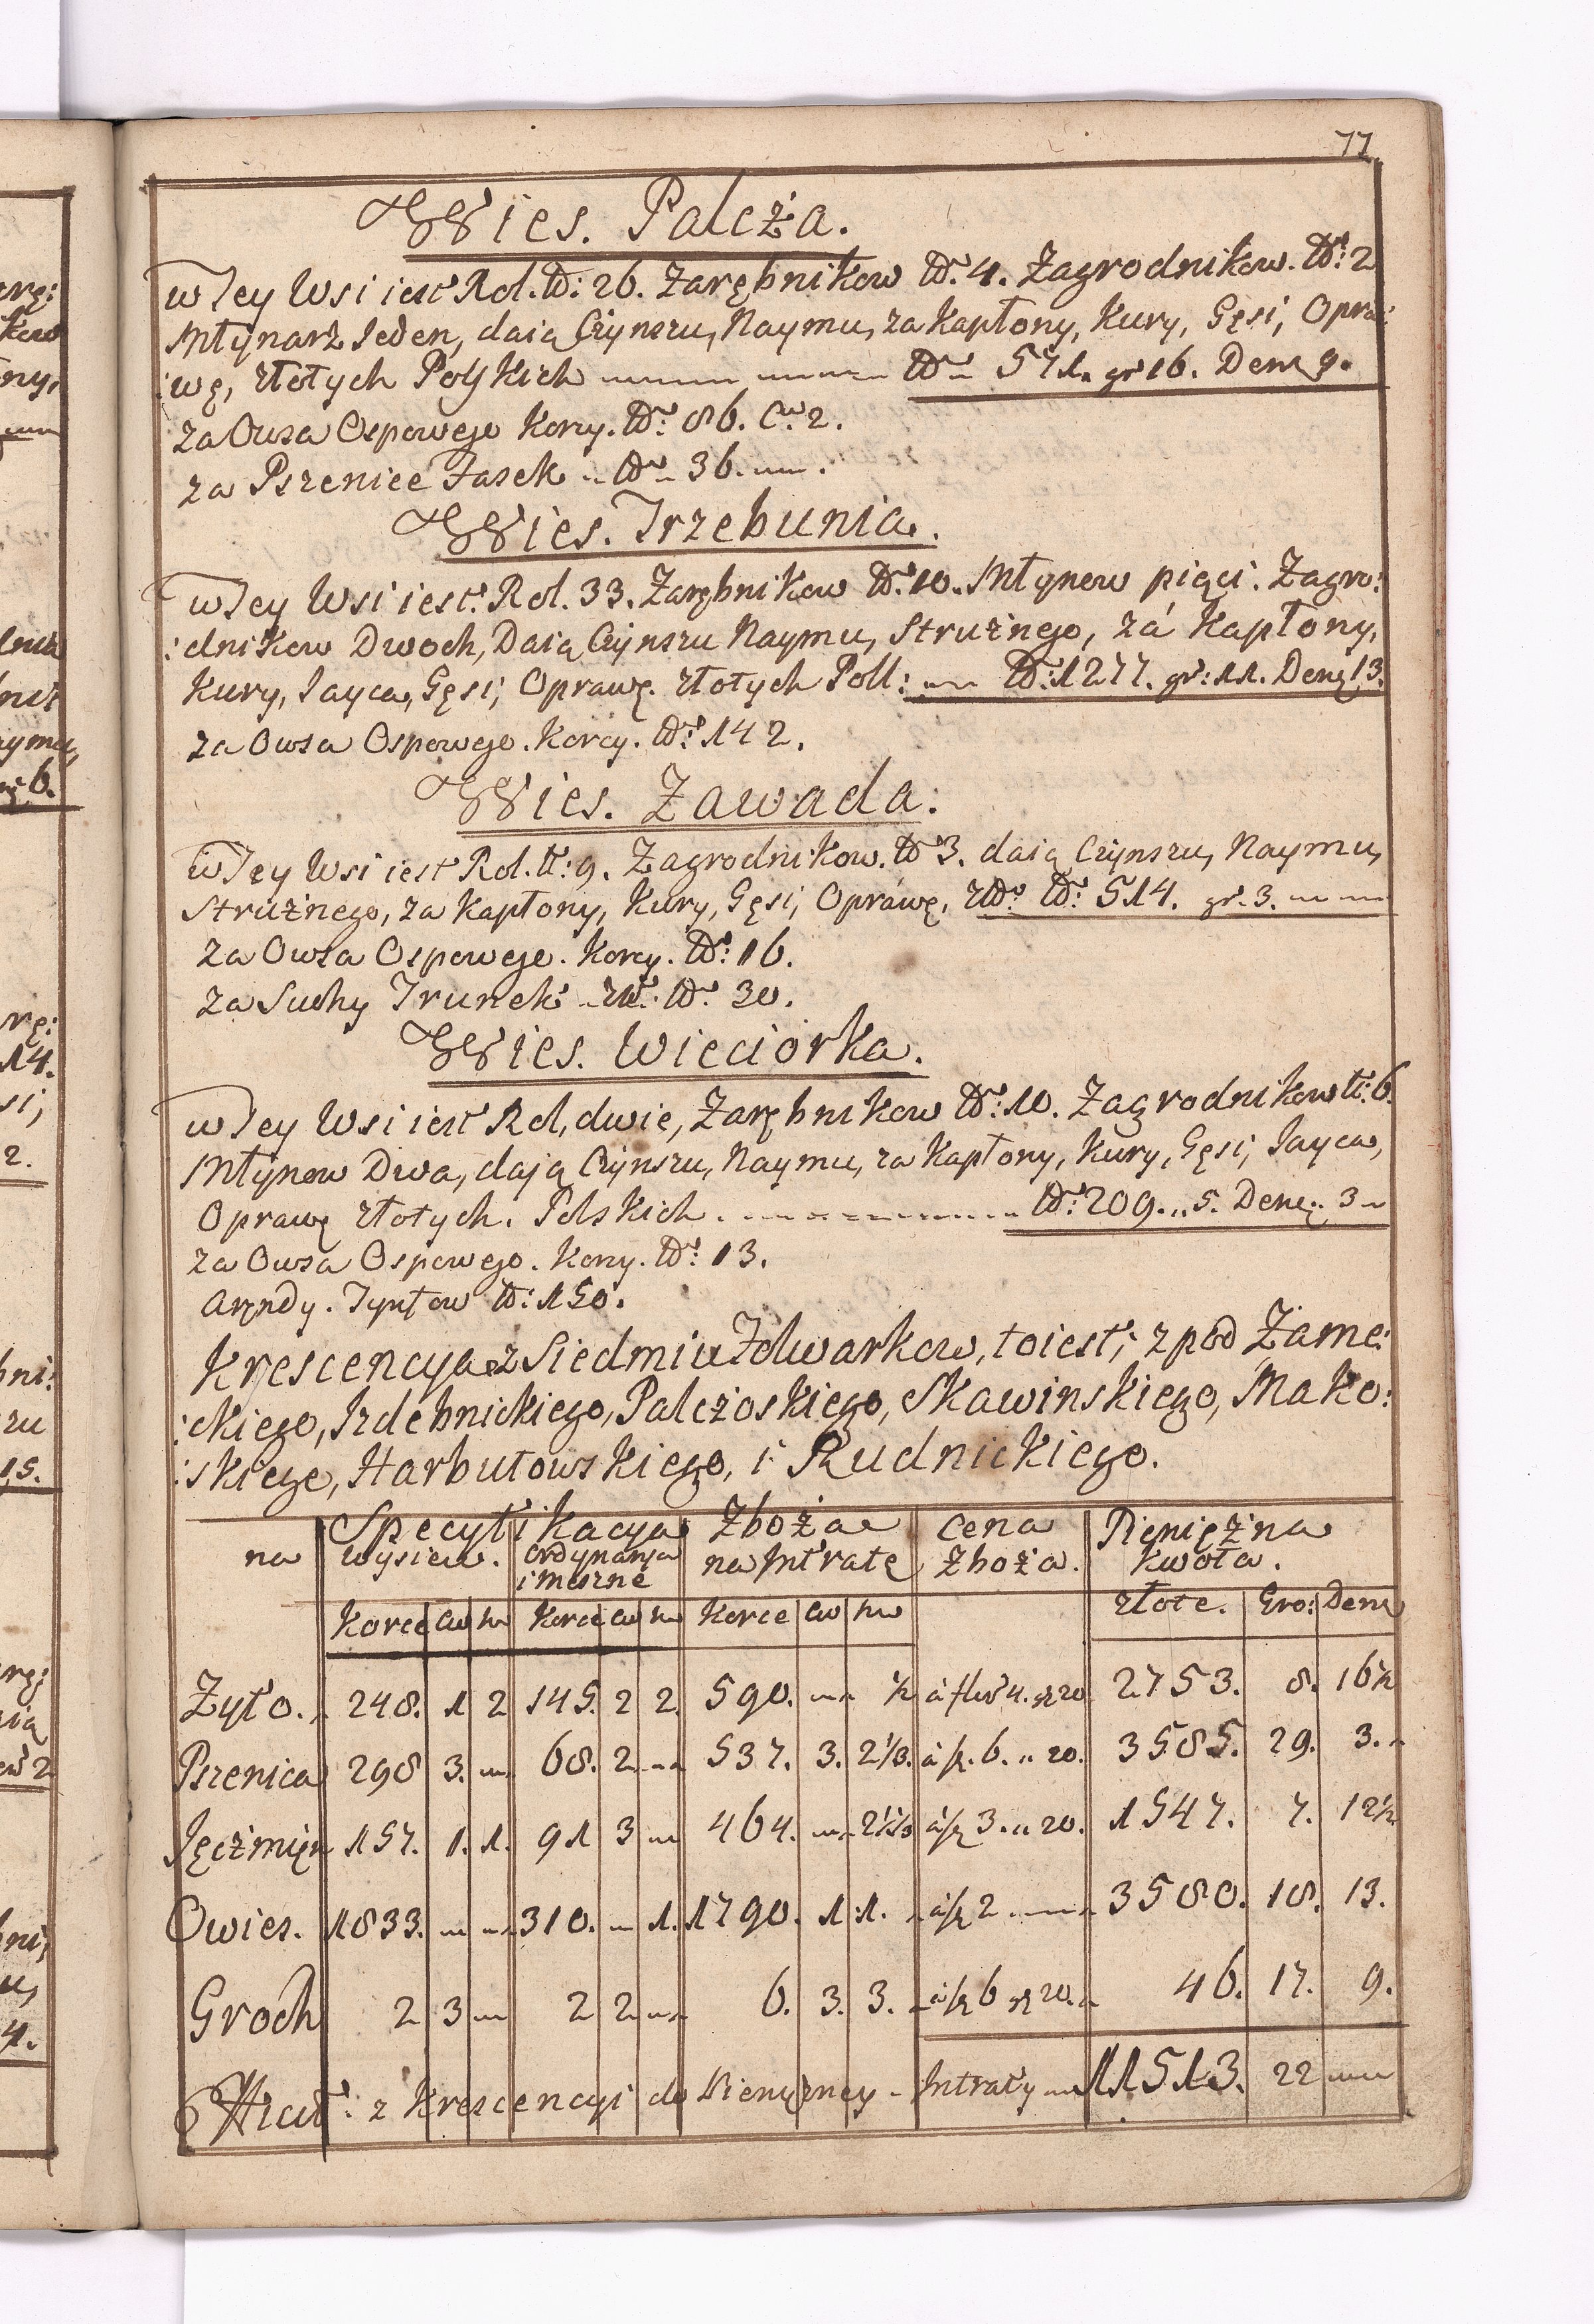 77
Wies. Palcża.
w Tey Wsi iest Rol. No: 26. Zarębnikow No. 4. Zagrodnikow. No: 2
Młynarż Ieden, daią Czynszu, Naymu, za Kapłony, Kury, Gęsi, Opra:
:wę, złotych Polskich No 571. gr 16. Den 9.
za Owsa Ospowego Korcy. No: 86. Cw. 2.
za Pszenice Fasek No 36.
Wies. Trzebunia.
w Tey Wsi iest. Rol. 33. Zarębnikow No: 10. Młynow pięci. Zagro:
:dnikow Dwoch, Daią Czynszu Naymu, Strużnego, zá Kapłony,
Kury, Iayca, Gęsi, Oprawę. złotych Poll: No: 1277. gr: 11. Den 13.
za Owsa Ospowego. Korcy. No: 142.
Wies. Zawada.
w Tey Wsi iest Rol. No: 9. Zagrodnikow. No 3. daią Czynszu, Naymu,
Strużnego, za Kapłony, Kury, Gęsi, Oprawę, No: 514. gr. 3.
za Owsa Ospowego. Korcy. No: 16.
za Suchy Trunek No: 30.
Wies. Wieciorka.
w Tey Wsi iest Rol, dwie, Zarębnikow No: 10. Zagrodnikow No: 6.
Młynow Dwa, dają Czynszu, Naymu, za Kapłony, Kury, Gęsi, Iayca,
Oprawę złotych. Polskich. No: 209. ,, 5. Den: 3
za Owsa Ospowego. Korcy. No: 13.
Arędy. Tynfow No: 150.
Krescencya z Siedmiu Folwarkow, to iest, z pod Zame:
:ckiego, Izdebnickiego, Palczoskiego, Skawinskiego, Mako:
:skiego, Harbutowskiego, i Rudnickiego.
Specyfikacya Zboża cena Pieniężna
na wysiew. Ordynarja i meszne na Intratę Zboża. kwota.
Korce Cw Korce Cw Korce Cw złote. Gro: Den
Żyto. 248. 1 2 145. 2 2. 590. ½ à fl 4. gr 20 2753. 8. 16½
Pszenica 298 3. 68. 2 537. 3. 2⅓. à f. 6. ,, 20. 3585. 29. 3.
Jęczmięn 157. 1. 1. 91 3 464. à f 3. ,, 20. 1547. 7. 12½
Owies. 1833. 310. 1. 1790. 1 1. à f 2 3580. 18. 13.
Groch 2 3 2 2 6. 3. 3. à f 6 gr 20. 46. 17. 9.
z Krescencyi do Pienięzney Intraty 11513. 22